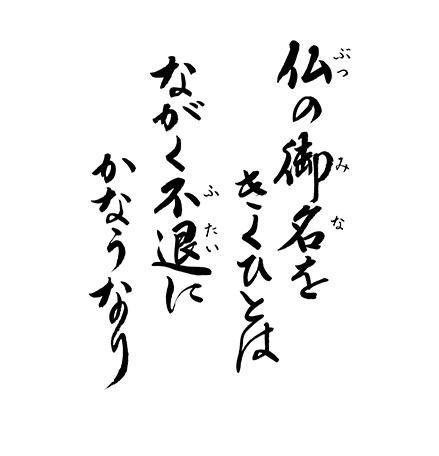 仏の御名を
きくひとは
ながく不退に
かなうなり
ぶつ
み
な
ふ
たい